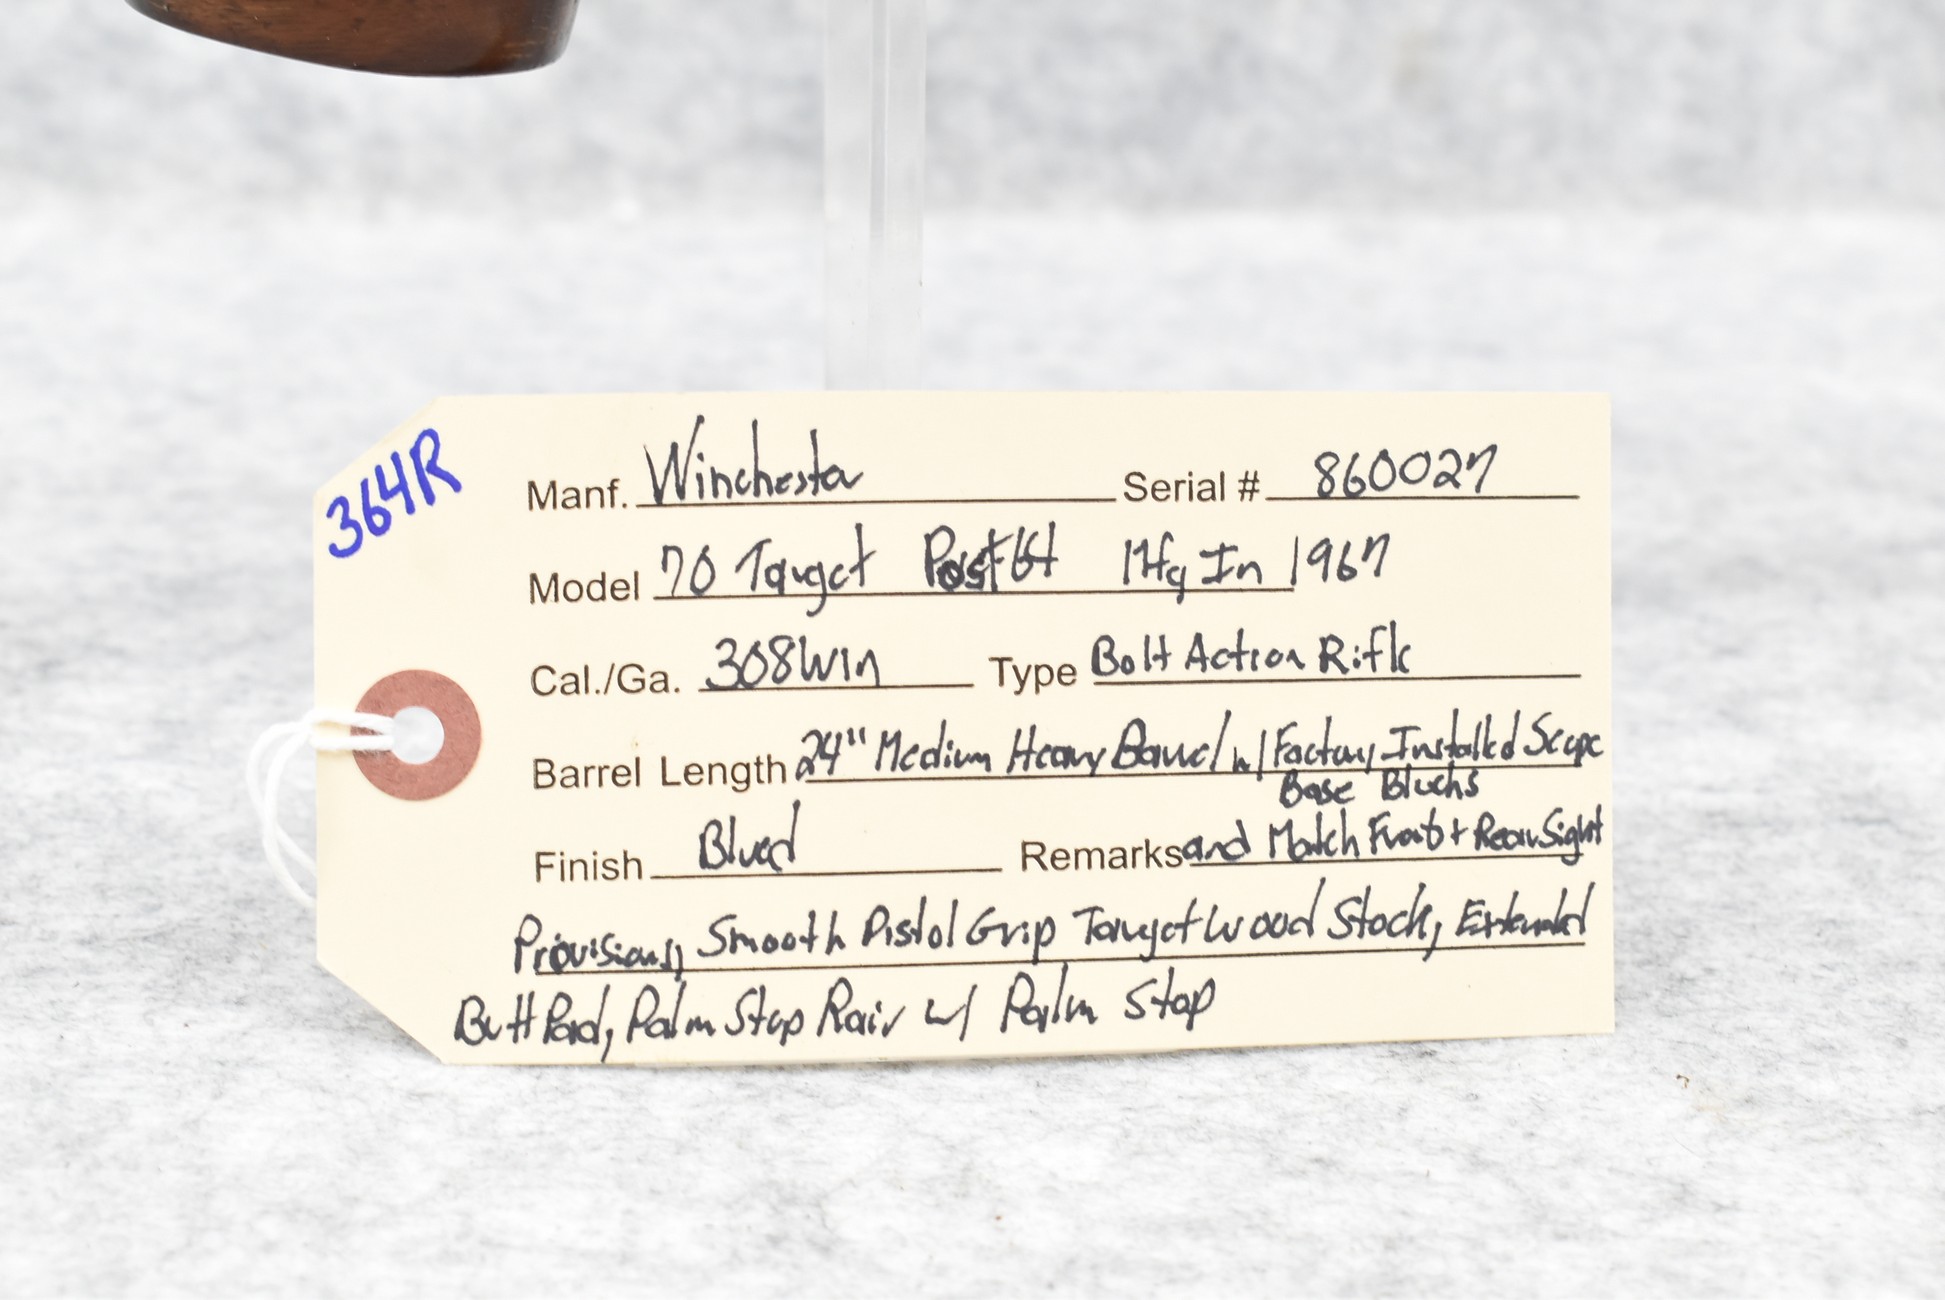 364R
Manf. Winchester Serial # 860027
Model 70 Target Post 64 Mfg In 1967
Cal./Ga. 308 Win Type Bolt Action Rifle
Barrel Length 24" Medium Heavy Barrel w/ Factory Installed Scope
Base Blocks
Finish Blued Remarks and Match Front + Rear Sight
Provisions, Smooth Pistol Grip Target Wood Stock, Extended
Butt Pad, Palm Stop Rair w/ Palm Stop